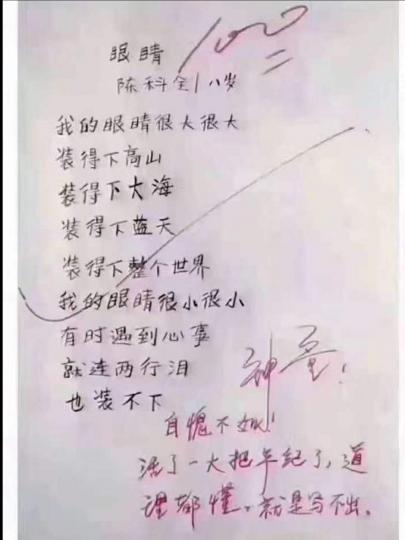 100
眼睛
陈科全 八岁
我的眼睛很大很大
装得下高山
装得下大海
装得下蓝天
装得下整个世界
我的眼睛很小很小
有时遇到心事
就连两行泪
也装不下
神童!
自愧不如!
活了一大把年纪了,道
理都懂。就是写不出。